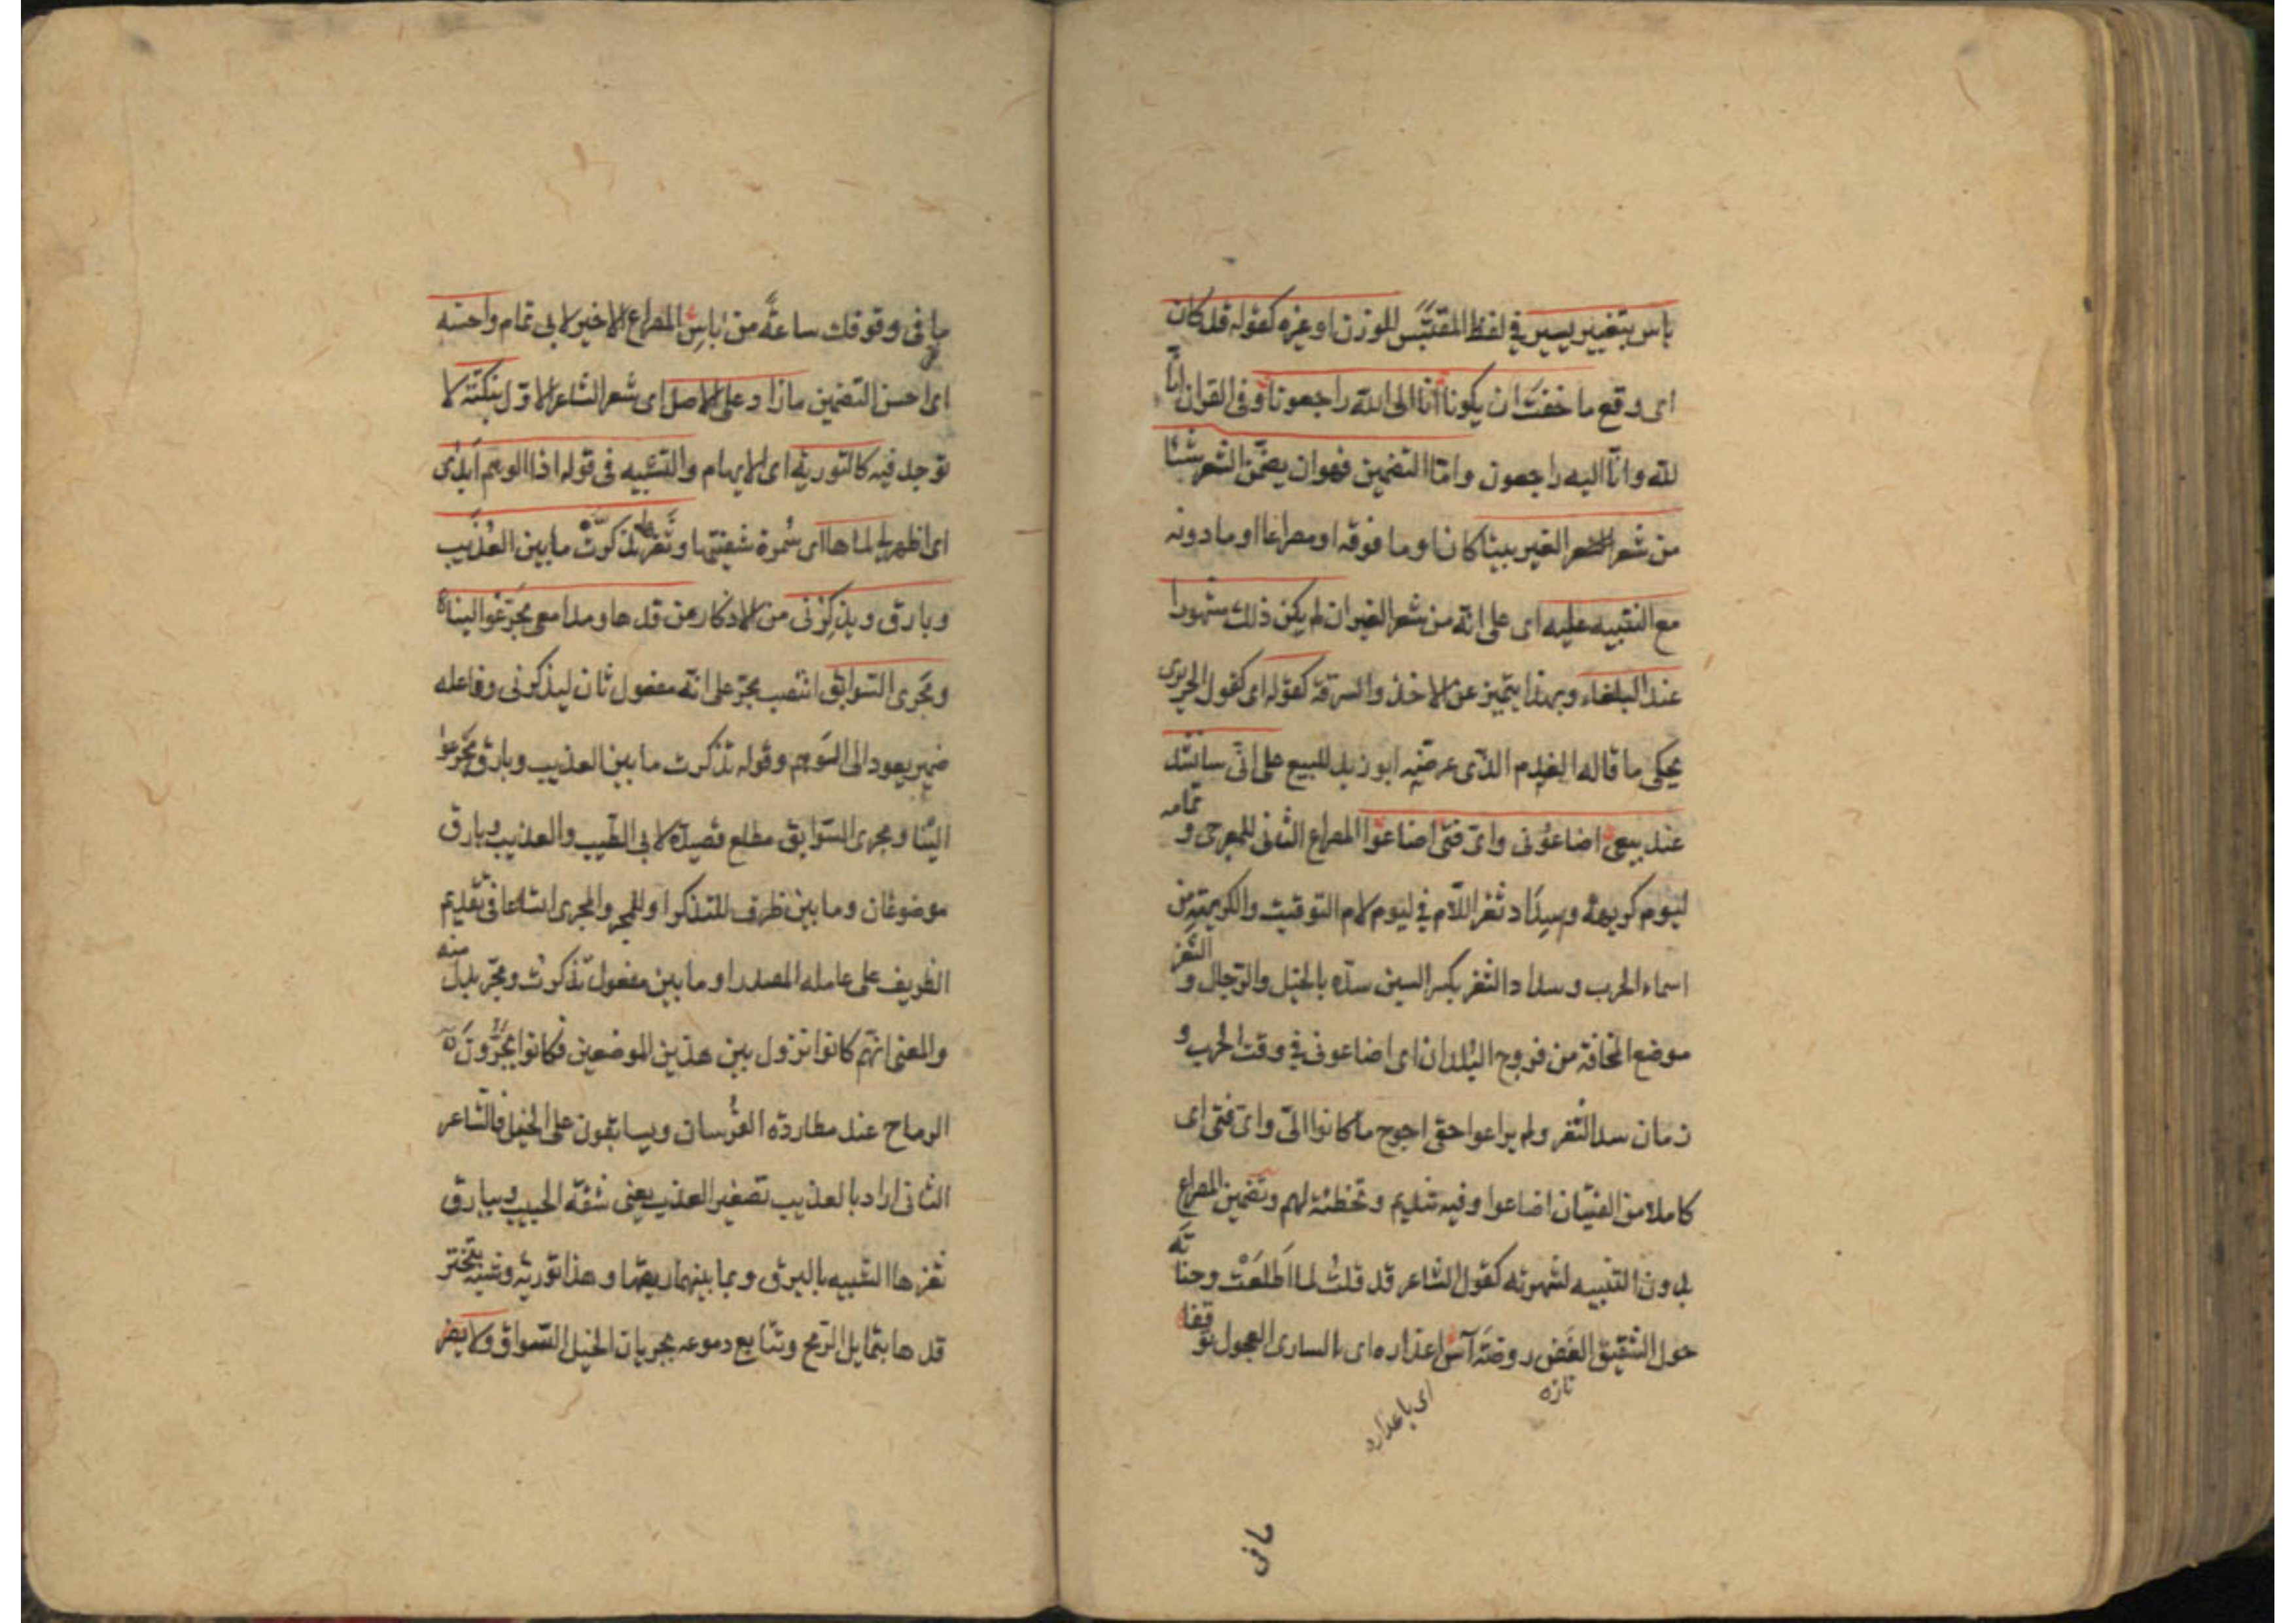 باس بتغيير يسير في لفظ المقتبس للوزن او غيره كقوله قد كان
اى وقع ما خفت ان يكونا انا الى الله راجعونا وفى القران انا
لله وانا اليه راجعون واما التضمين فهو ان يضمن الشعر شيئا
من شعر الغير بيتا كان او ما فوقه او مصراعا او ما دونه
مع التنبيه عليه اى على انه من شعر الغير ان لم يكن ذلك مشهورا
عند البلغاء وبهذا يتميز عن الاخذ والسرقة كقوله اى كقول الحريرى
يحكى ما قاله الغلام الذى عرضه ابو زيد للبيع على انى سانشد
عند بيعى اضاعونى واى فتى اضاعوا المصراع الثانى للعرجى و تمامه
ليوم كريهة وسداد ثغر اللام في ليوم لام التوقيت والكريهة من
اسماء الحرب وسداد الثغر بكسر السين سده بالخيل والرجال و الثغر
موضع المخافة من فروج البلدان اى اضاعونى في وقت الحرب و
زمان سد الثغر ولم يراعوا حقى احوج ما كانوا الى واى فتى اى
كاملا من الفتيان اضاعوا وفيه تنديم وتخطئة لهم وتضمين المصراع
بدون التنبيه لشهرته كقول الشاعر قد قلت لما اطلعت وجناته
حول الشقيق الغض روضة آس اعذاره اى السارى العجول توقفا
تازه
اى يا عذاره
مافى
ما فى وقوفك ساعة من باس المصراع الاخير لابى تمام واحسنه
اى احسن التضمين ما زاد على الاصل اى شعر الشاعر الاول بنكتة لا
توجد فيه كالتورية اى الايهام والتشبيه فى قوله اذا الوهم ابدى
اى اظهر لى لماها اى سمرة شفتيها وثغرها تذكرت ما بين العذيب
وبارق ويذكرنى من الاذكار من قدها ومدامعى مجر عوالينا
ومجرى السوابق انتصب مجر على انه مفعول ثان ليذكرنى وفاعله
ضمير يعود الى الوهم وقوله تذكرت ما بين العذيب وبارق مجر عوا
الينا ومجرى السوابق مطلع قصيدة لابى الطيب والعذيب وبارق
موضوعان وما بين ظرف للتذكر او للمجر والمجرى اتساعا فى تقديم
الظريف على عامله المصدر او ما بين مفعول تذكرت ومجر بدل منه
والمعنى انهم كانوا نزول بين هذين الموضعين فكانوا يجرون
الرماح عند مطاردة الفرسان ويسابقون على الخيل فالشاعر
الثانى اراد بالعذيب تصغير العذب يعنى شفة الحبيب وببارق
ثغرها الشبيه بالبرق وبما بينهما ريقها وهذا تورية وشبه تبختر
قدها بتمايل الرمح وتتابع دموعه بجريان الخيل السوابق ولا يضر